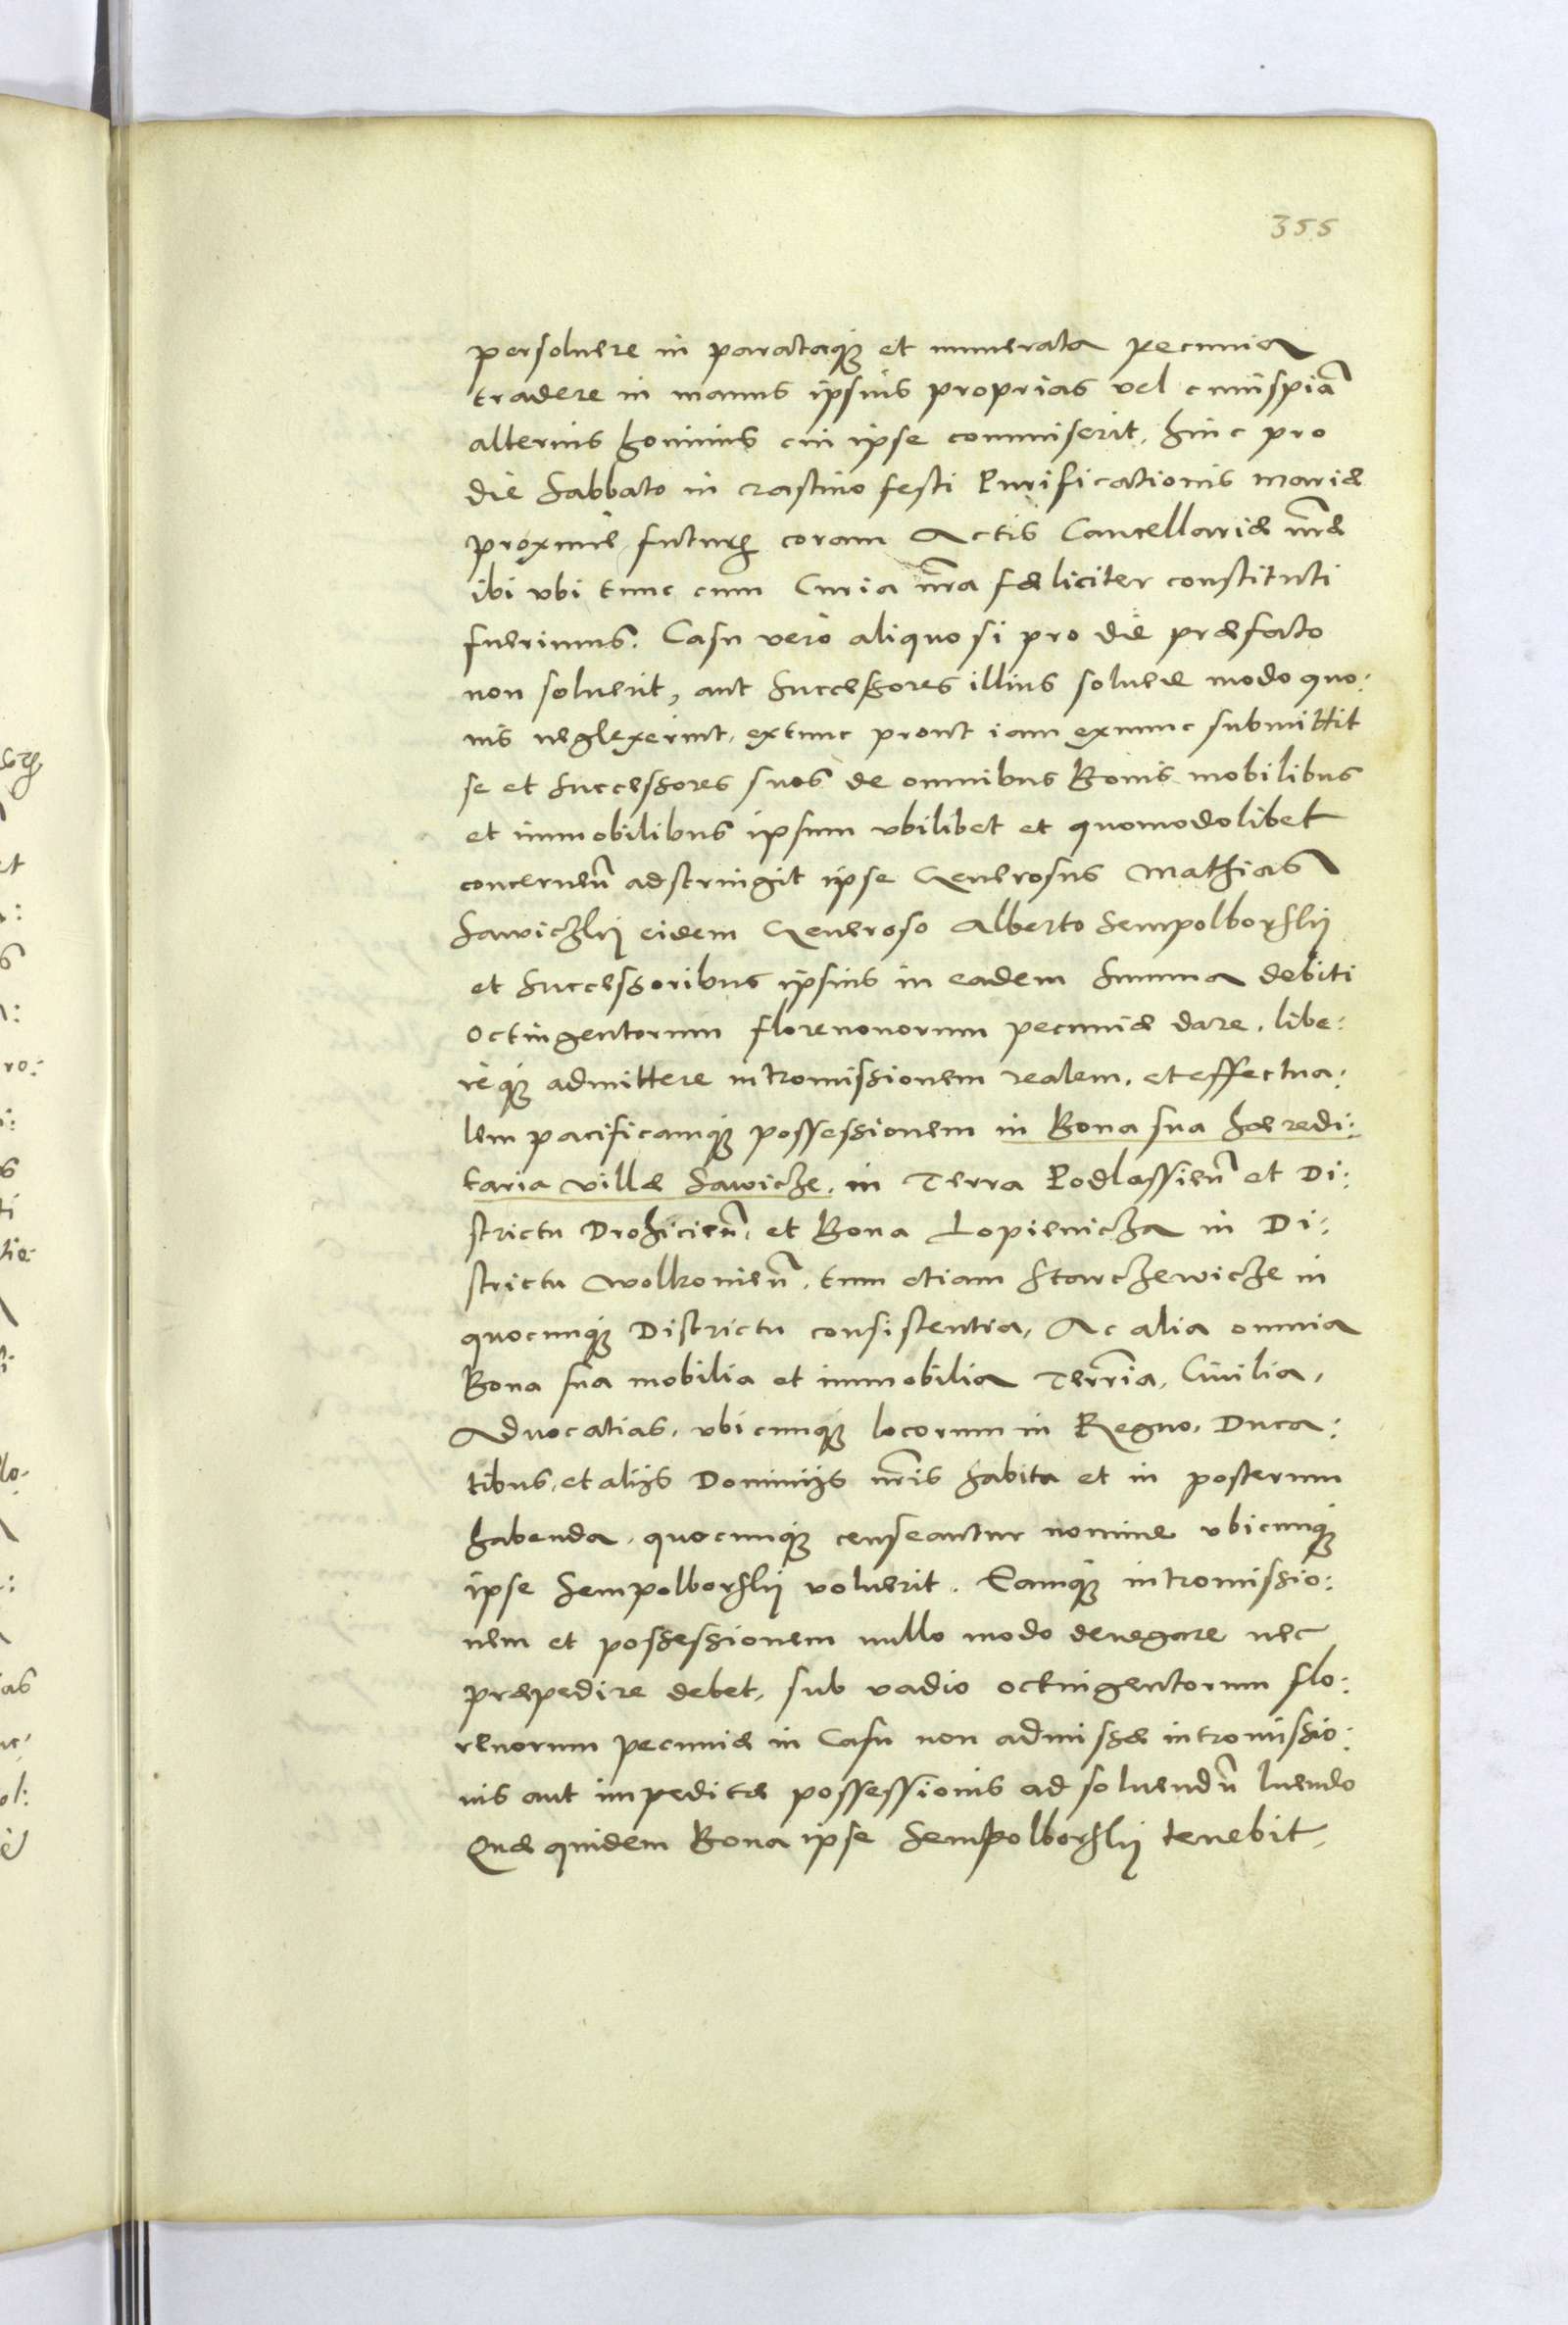 355
persoluere in parataq; et numerata pecunia
tradere in manus ipsius proprias vel cuiuspiā
alterius hominis cui ipse commiserit, hinc pro
die Sabbato in crastino festi Purificationis Mariæ
proxime futuro coram Actis Cancellariæ nr̄æ
ibi vbi tunc cum Curia nr̄a fæliciter constituti
fuerimus. Casu vero aliquo si pro die præfato
non soluerit, aut Successores illius soluere modo quo:
uis neglexerint, extunc prout iam exnunc submittit
se et Successores suos de omnibus Bonis mobilibus
et immobilibus ipsum vbilibet et quomodolibet
concernen̄ adstringit ipse Generosus Mathias
Sawiczkij eidem Generoso Alberto Sempolborskij
et Successoribus ipsius in eadem Summa debiti
Octingentorum florenonorum pecuniæ dare, libe:
req; admittere intromissionem realem, et effectua:
lem pacificamq; possessionem in Bona sua hæredi:
taria villæ Sawicze, in Terra Podlassien̄ et Di:
strictu Drohicien̄, et Bona Lopienicza in Di:
strictu Wolkouien̄, tum etiam Starczewicze in
quocunq; Districtu consistentia, Ac alia omnia
Bona sua mobilia et immobilia Terr̄ia, Ciuilia,
Aduocatias, vbicunq; locorum in Regno, Duca:
tibus, et alijs Dominijs nr̄is habita et in posterum
habenda, quocunq; censeantur nomine vbicunq;
ipse Sempolborskij voluerit. Eamq; intromissio:
nem et possessionem nullo modo denegare nec
præpedire debet, sub vadio octingentorum flo:
renorum pecuniæ in Casu non admissæ intromissio:
nis aut impeditæ possessionis ad soluendū luendo
Quæ quidem Bona ipse Sempolborskij tenebit,